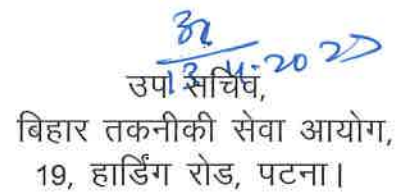 उप सचिव,
बिहार तकनीकी सेवा आयोग,
19, हार्डिंग रोड, पटना।